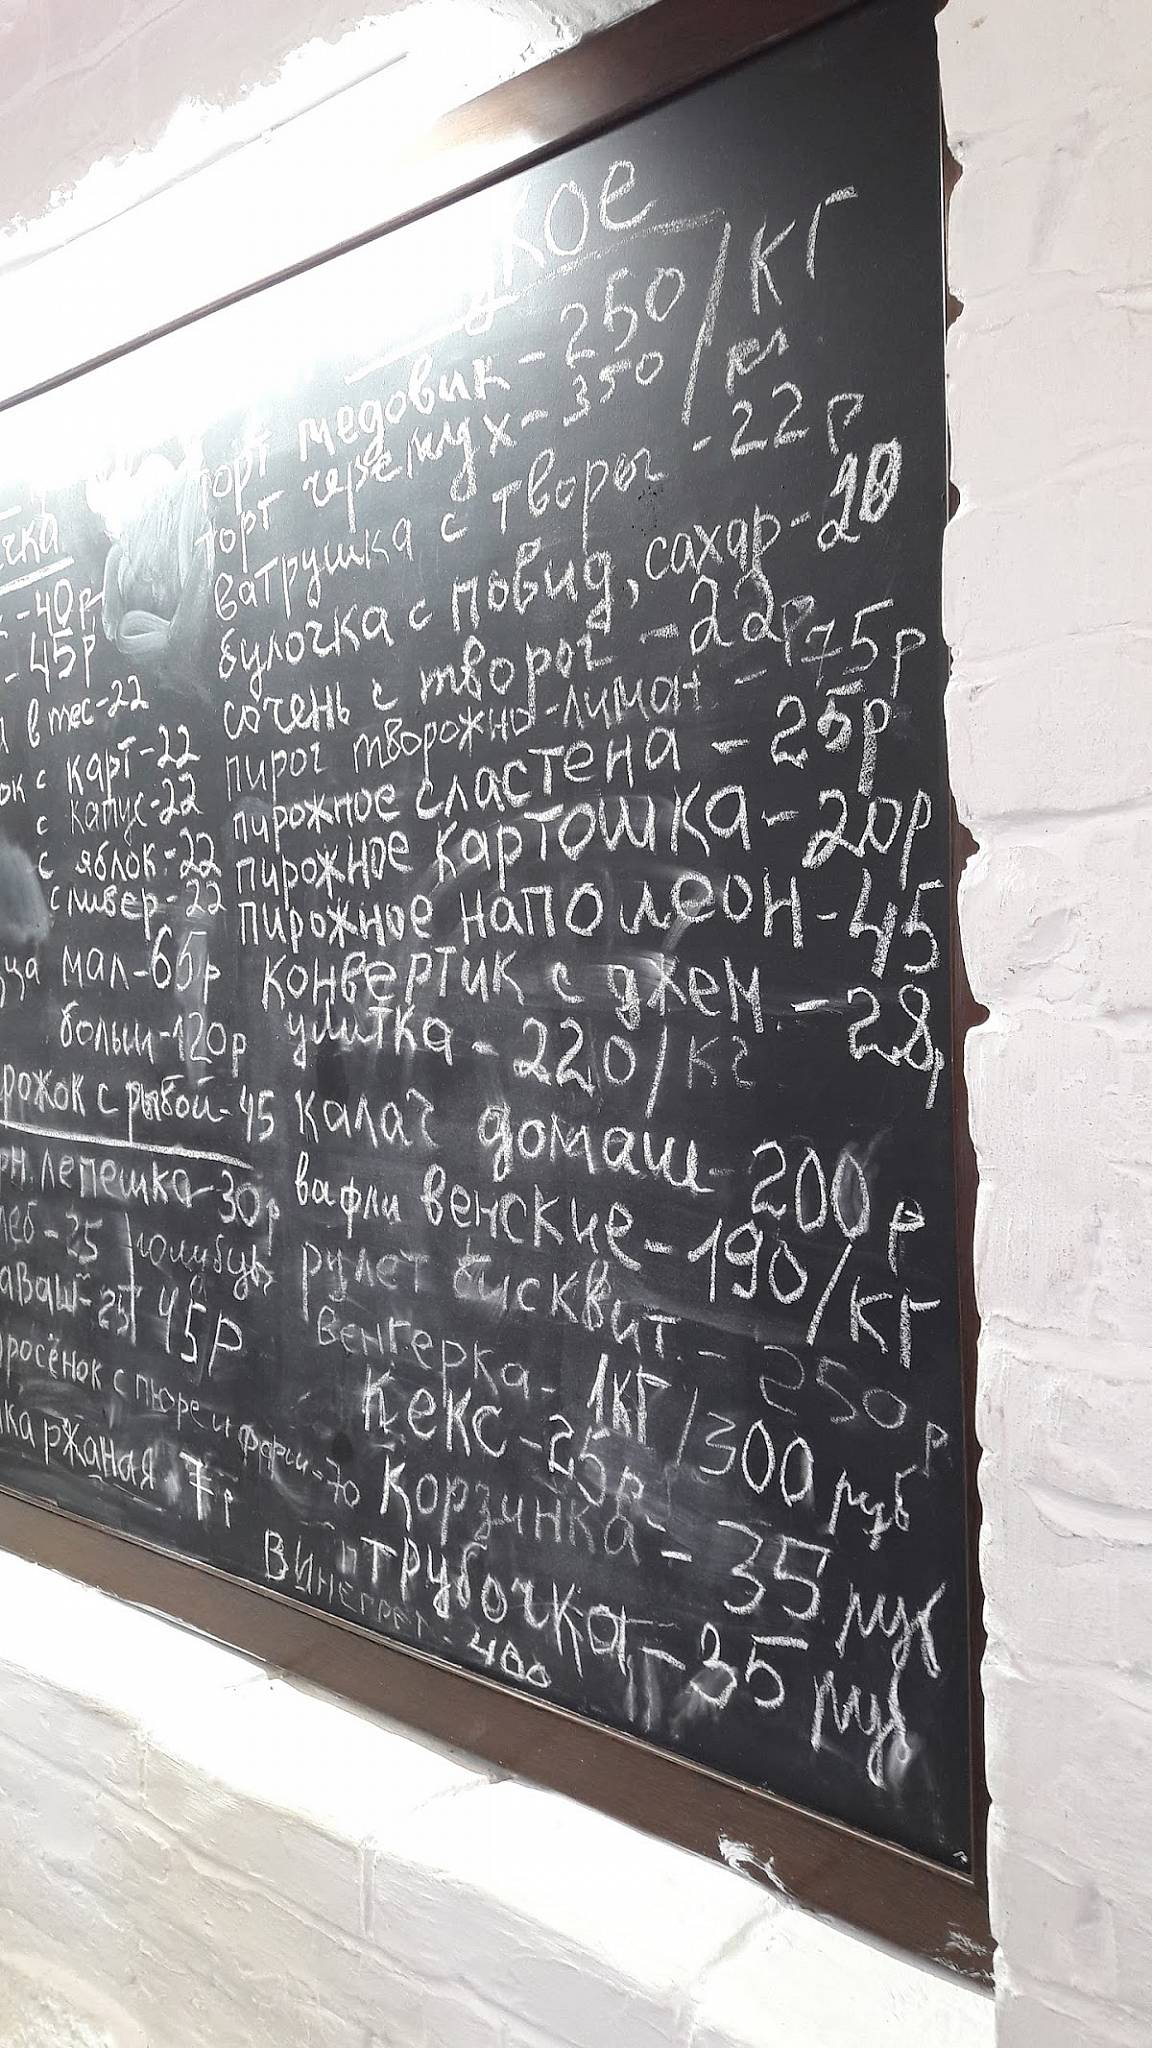 чка
-40р
-45р
в тес-22
ок с карт-22
с капус-22
с яблок-22
с ливер-22
ца мал-65р
больш-120р
рожок с рыбой-45
рн. лепешка-30р
леб-25
аваш-25
45р
росёнок с пюре и фарш-70
ка ржаная 7р
кое
торт медовик-250/кг
торт черемух-350
ватрушка с творог-22р
булочка с повид, сахар-20
сочень с творог-22р
пирог творожно-лиман-75р
пирожное сластена-25р
пирожное картошка-20р
пирожное наполеон-45
конвертик с джем.-28р
улитка-220/кг
калач домаш-200р
вафли венские-190/кг
рулет бисквит.-250р
венгерка-1кг/300 руб
кекс-25р
корзинка-35 руб
трубочка-35 руб
винегрет-400